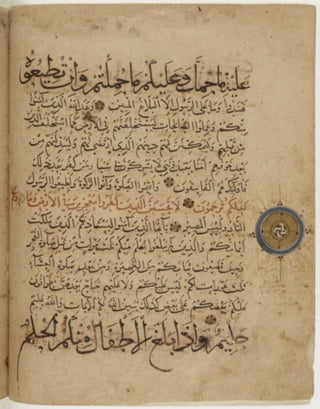 عليه ما حمل وعليكم ما حملتم وان تطيعوه
تهتدوا وما على الرسول الا البلاغ المبين وعد الله الذين آمنوا
منكم وعملوا الصالحات ليستخلفنهم في الارض كما استخلف الذين
من قبلهم وليمكنن لهم دينهم الذي ارتضى لهم وليبدلنهم من
بعد خوفهم امنا يعبدونني لا يشركون بي شيئا ومن كفر بعد ذلك
فاولئك هم الفاسقون واقيموا الصلوة وآتوا الزكوة واطيعوا الرسول
لعلكم ترحمون لا تحسبن الذين كفروا معجزين في الارض وما
النار ولبئس المصير يا ايها الذين آمنوا ليستاذنكم الذين ملكت
ايمانكم والذين لم يبلغوا الحلم منكم ثلث مرات من قبل صلوة الفجر
وحين تضعون ثيابكم من الظهيرة ومن بعد صلوة العشاء
ثلث عورات لكم ليس عليكم ولا عليهم جناح بعدهن طوافون
عليكم بعضكم على بعض كذلك يبين الله لكم الايات والله عليم
حكيم واذا بلغ الاطفال منكم الحلم